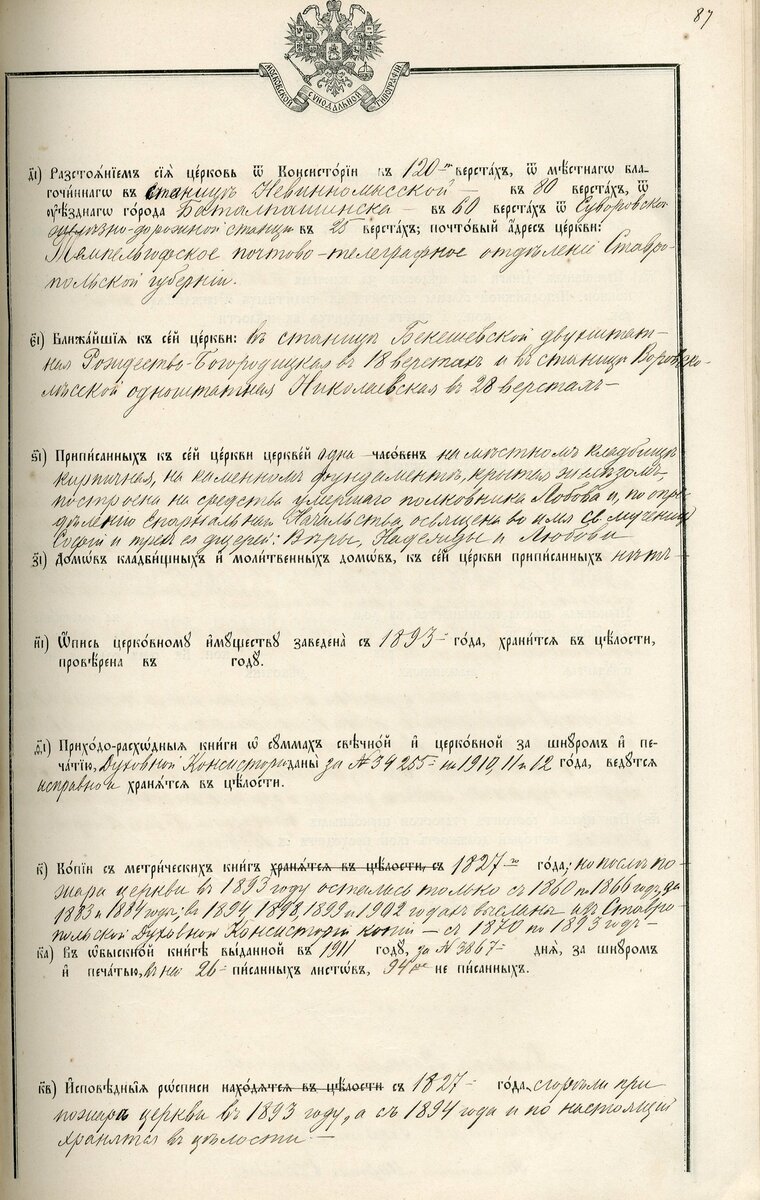 87
МОСКОВСКОЙ СѴНОДАЛЬНОЙ ТИПОГРАФІИ
д҃і) Разстоѧ́нїемъ сїѧ̀ це́рковь ѿ Консисто́рїи въ 120-ти верста́хъ, ѿ мѣ́стнагѡ бла-
гочи́ннагѡ въ станицѣ Невинномысской — въ 80 верста́хъ, ѿ
ᲂу҆ѣ́зднагѡ го́рода Баталпашинска въ 60 верста́хъ ѿ Суворовской
желѣзно-дорожной станціи въ 25 верста́хъ; почто́вый а҆́дресъ це́ркви:
Темпельгофское почтово-телеграфное отдѣленіе Ставро-
польской губерніи.
є҃і) Ближа́йшїѧ къ се́й це́ркви: въ станицѣ Бекешевской двухштат-
ная Рождество-Богородицкая въ 18 верстахъ и въ станицѣ Воровско-
лѣсской одноштатная Николаевская въ 28 верстахъ —
ѕ҃і) Припи́санныхъ къ се́й це́ркви церкве́й одна часо́вень на мѣстномъ кладбищѣ
кирпичная, на каменномъ фундаментѣ, крытая желѣзомъ,
построена на средства умершаго полковника Лобова и, по опре-
дѣленію Епархіальнаго Начальства, освящена во имя св. мученицы
Софіи и трехъ ея дщерей: Вѣры, Надежды и Любови
з҃і) Домѡ́въ кладби́щныхъ и҆ моли́твенныхъ домѡ́въ, къ се́й це́ркви припи́санныхъ нѣтъ —
и҃і) Ѻ҆́пись церко́вному и҆мꙋ́ществу заведена̀ съ 1893 го́да, храни́тсѧ въ цѣ́лости,
прове́рена въ годꙋ̀.
ѳ҃і) Прихо́до-расхѡ́дныѧ кни́ги ѡ҆ сꙋ́ммахъ свѣ́чной и҆ церко́вной за шнꙋро́мъ и҆ пе-
ча́тїю, Духовной Консисторіи да́ны за № 34255 на 1910, 11 и 12 го́да, ведꙋ́тсѧ
исправно и хранѧ́тсѧ въ цѣ́лости.
к҃) Ко́пїи съ метри́ческихъ кни́гъ хранѧ́тсѧ въ цѣ́лости, съ 1827-го го́да; но послѣ по-
жара церкви въ 1893 году остались только съ 1860 по 1866 годъ, за
1883 и 1884 годы; въ 1894, 1898, 1899 и 1902 годахъ высланы изъ Ставро-
польской Духовной Консисторіи копіи — съ 1870 по 1893 годъ —
к҃а) Въ ѡ҆бы́скной кни́гѣ вы́данной въ 1911 годꙋ̀, за № 3867 днѧ̀, за шнꙋро́мъ
и҆ печа́тїю, въ ней 26 пи́санныхъ листѡ́въ, 94 не пи́санныхъ.
к҃в) И҆сповѣ́дныѧ рѡ́списи нахо́дѧтсѧ въ цѣ́лости съ 1827 го́да, сгорѣли при
пожарѣ церкви въ 1893 году, а съ 1894 года и по настоящій
хранятся въ цѣлости. —